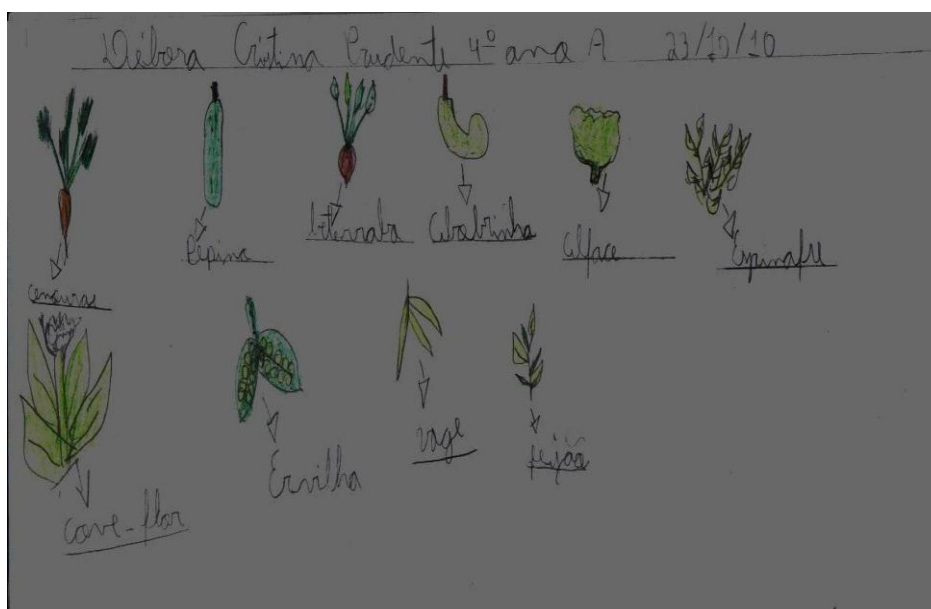 Débora Cristina Prudente 4º ano A 23/10/10
Pepino
beterraba
Abobrinha
Alface
Espinafre
cenouras
couve-flor
Ervilha
vage
feijão